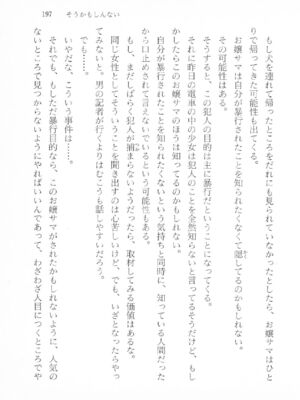 197　そうかもしんない
もし犬を連れて帰ったところをだれにも見られていなかったとしたら、お嬢サマはひと
りで帰ってきた可能性も出てくる。
お嬢サマは自分が暴行されたことを知られたくなくて隠してるのかもしれない。
その可能性はある。
そうすると、この犯人の目的は主に暴行だということになってくる。
それに昨日の電車の中の少女は犯人のことを全然知らないと言ってるそうだけど、もし
かしたらこのお嬢サマのほうは知ってるのかもしれない。
自分が暴行されたことを知られたくないという気持ちと同時に、知っている人間だった
から口止めされて言えないでいるという可能性もある。
もし、まだしばらく犯人が捕まらないようだったら、取材してみる価値はあるな。
同じ女性としてそういうことを聞き出すのは心苦しいけど、でも、いざとなったらやっ
てみよう。男の記者が行くよりはむこうも話しやすいだろう。
でも……。
いやだな、こういう事件は……。
でも、もしただ暴行目的なら、このお嬢サマがされたかもしれないように、人気の
ないところで見つからないようにやればいいんであって、わざわざ人目につくところでや